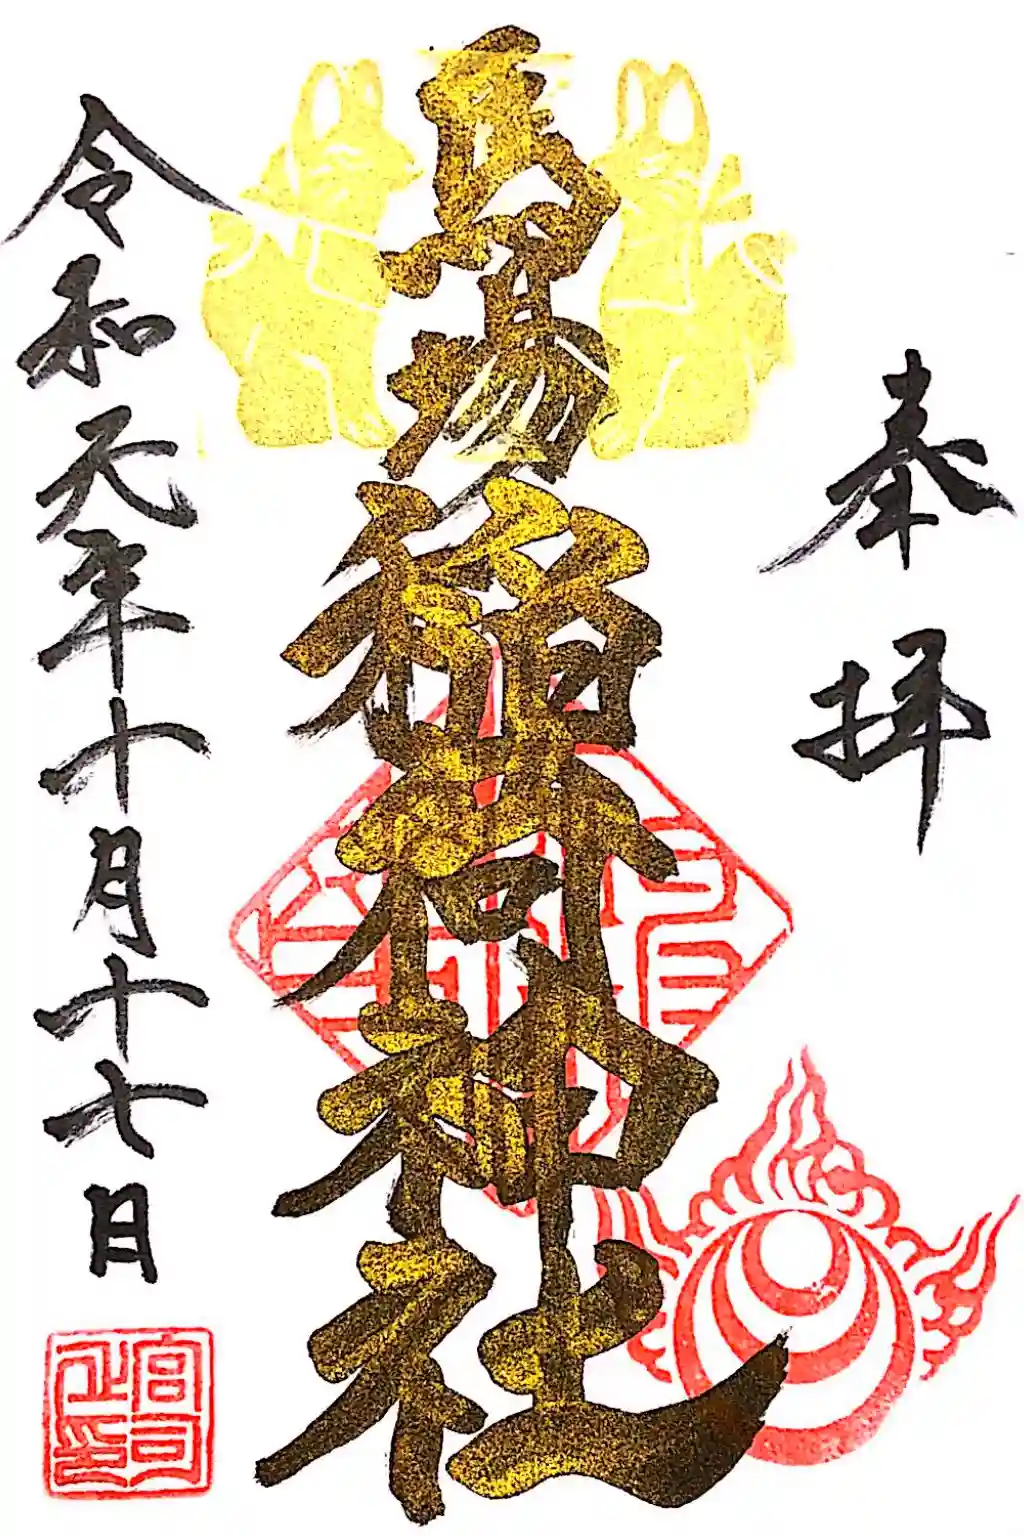 奉拝
馬場稲荷神社
令和元年十月十七日
宮司之印